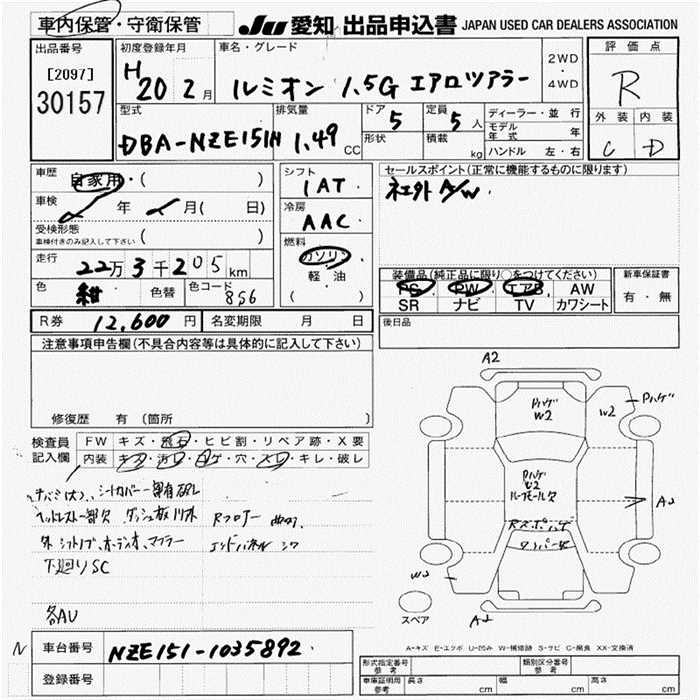 車内保管・守衛保管
JU 愛知 出品申込書 JAPAN USED CAR DEALERS ASSOCIATION
出品番号
[2097]
30157
初度登録年月
H 20 2月
車名・グレード
ルミオン 1.5G エアロツアラー
2WD
・
4WD
評価点
R
外装 内装
C D
型式
DBA-NZE151H
排気量
1.49 CC
ドア
5
形状
定員
5人
積載
kg
ディーラー・並行
モデル年式 年
ハンドル 左・右
車歴
自家用・( )
車検
年 月( 日)
受検形態
車検付きのみ記入して下さい ( )
走行
22万3千205km
色
紺
色替
色コード
8S6
シフト
1AT
冷房
AAC
燃料
ガソリン
軽・油
( )
セールスポイント(正常に機能するものに限ります)
社外A/W.
装備品(純正品に限り○をつけてください)
PS PW エアB AW
SR ナビ TV カワシート
新車保証書
有・無
R券 12,600円
名変期限 月 日
後日品
注意事項申告欄(不具合内容等は具体的に記入して下さい)
修復歴 有(箇所 )
検査員
記入欄
FW キズ・飛石・ヒビ割・リペア跡・X要
内装 キズ・汚レ・コゲ・穴・スレ・キレ・破レ
シートカバー一部有破レ
ヘッドレスト一部欠
外シフトノブ、オーディオ、マフラー
下廻りSC
各AU
Rフロアー 曲り
エンドパネル シワ
A2
Pハゲ
W2
W2
Pハゲ
Pハゲ
U2
ルーフモール欠
A2
Rスポハゲ
ワイパー欠
W3
スペア
A2
A-キズ E-エクボ U-凹み W-補修跡 S-サビ C-腐食 XX-交換済
N
車台番号 NZE151-1035892
登録番号
形式指定番号
参考
類別区分番号
参考
車庫証明用
参考
長さ cm
幅 cm
高さ cm